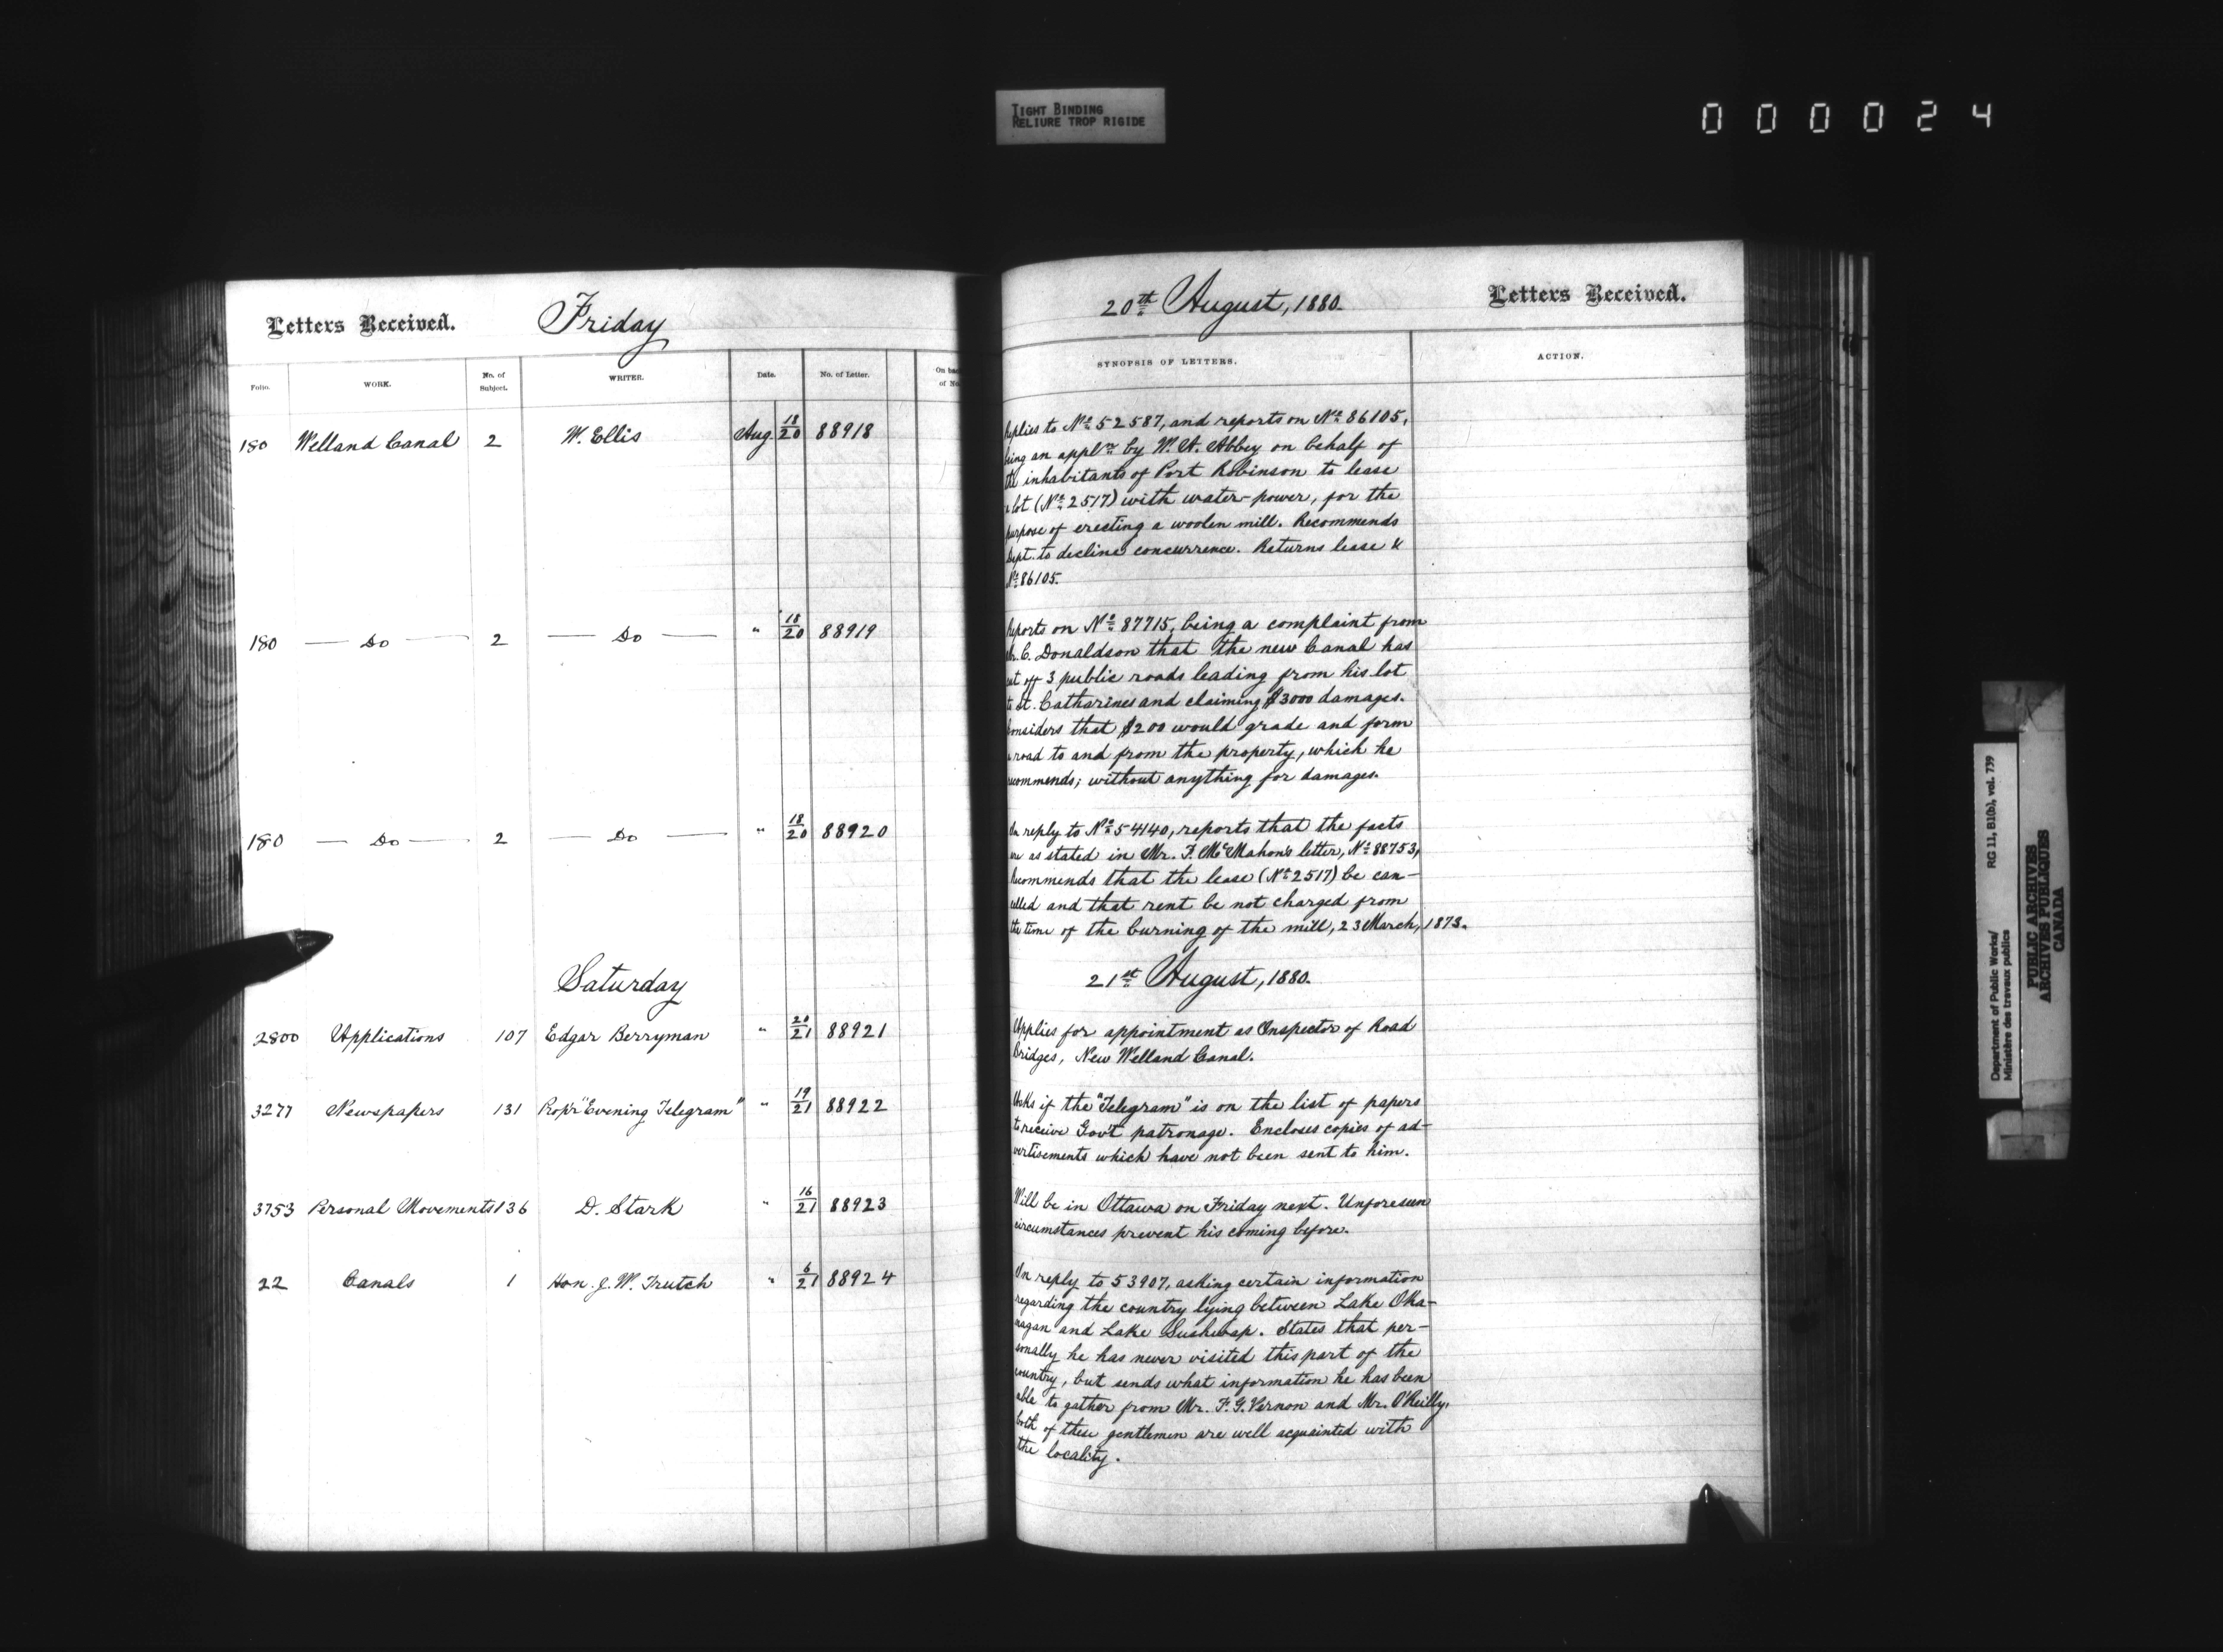 TIGHT BINDING
RELIURE TROP RIGIDE
000024
Letters Received. Friday
Folio. WORK. No. of Subject. WRITER. Date. No. of Letter. On back of No.
180 Welland Canal 2 W. Ellis Aug. 18/20 88918
180 — Do — 2 — Do — " 18/20 88919
180 — Do — 2 — Do — " 18/20 88920
Saturday
2800 Applications 107 Edgar Berryman " 20/21 88921
3277 Newspapers 131 Prop'r "Evening Telegram" " 19/21 88922
3753 Personal Movements 136 D. Stark " 16/21 88923
22 Canals 1 Hon. J. W. Trutch " 6/21 88924
20th August, 1880. Letters Received.
SYNOPSIS OF LETTERS. ACTION.
Replies to No. 52587, and reports on No. 86105,
being an appln by W. A. Abbey on behalf of
the inhabitants of Port Robinson to lease
a lot (No. 2517) with water-power, for the
purpose of erecting a woolen mill. Recommends
Dept. to decline concurrence. Returns lease &
No. 86105.
Reports on No. 87715, being a complaint from
Mr. C. Donaldson that the new Canal has
cut off 3 public roads leading from his lot
to St. Catharines and claiming $3000 damages.
Considers that $200 would grade and form
a road to and from the property, which he
recommends; without anything for damages.
In reply to No. 54140, reports that the facts
are as stated in Mr. F. McMahon's letter, No. 88753,
Recommends that the lease (No. 2517) be can-
celled and that rent be not charged from
the time of the burning of the mill, 23 March, 1873.
21st August, 1880.
Applies for appointment as Inspector of Road
bridges, New Welland Canal.
Asks if the "Telegram" is on the list of papers
to receive Gov't patronage. Encloses copies of ad-
vertisements which have not been sent to him.
Will be in Ottawa on Friday next. Unforeseen
circumstances prevent his coming before.
In reply to 53907, asking certain information
regarding the country lying between Lake Oka-
nagan and Lake Sushwap. States that per-
sonally he has never visited this part of the
country, but sends what information he has been
able to gather from Mr. F. G. Vernon and Mr. O'Reilly,
both of these gentlemen are well acquainted with
the locality.
Department of Public Works/ RG 11, B10(b), vol. 739
Ministère des travaux publics
PUBLIC ARCHIVES
ARCHIVES PUBLIQUES
CANADA